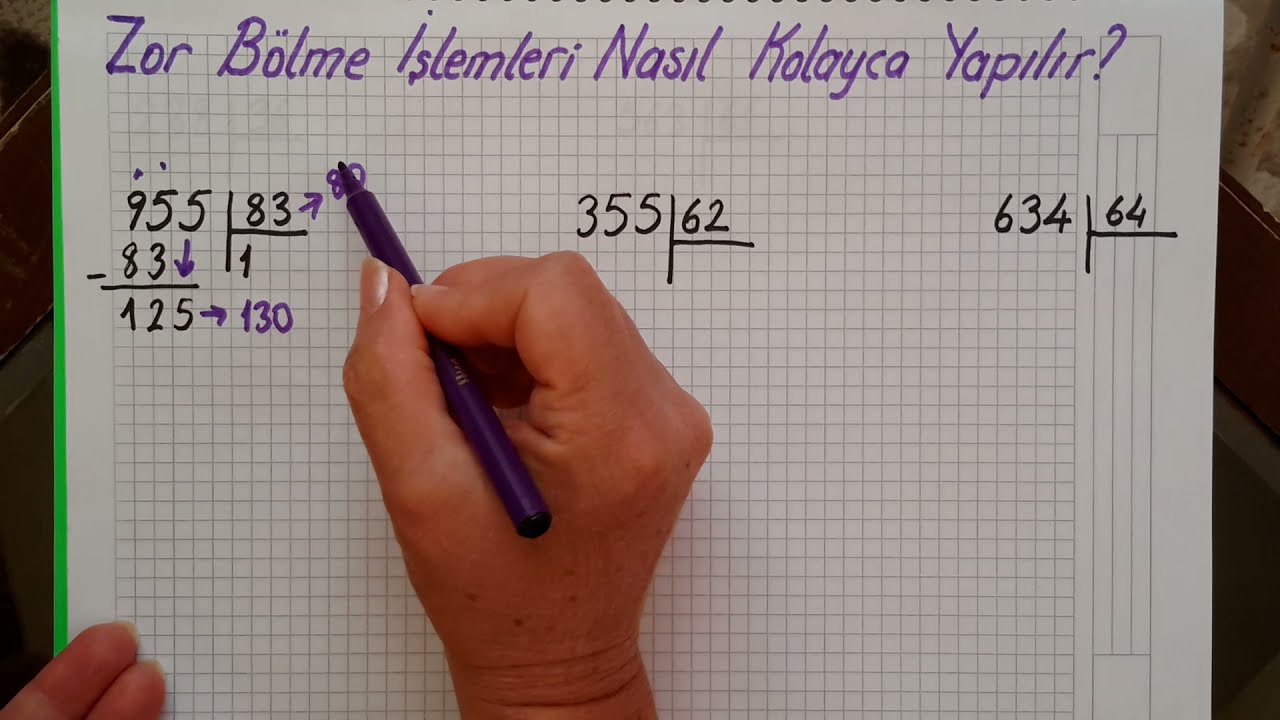 Zor Bölme İşlemleri Nasıl Kolayca Yapılır?
955 83 → 80
- 83 ↓ 1
125 → 130
355 62
634 64